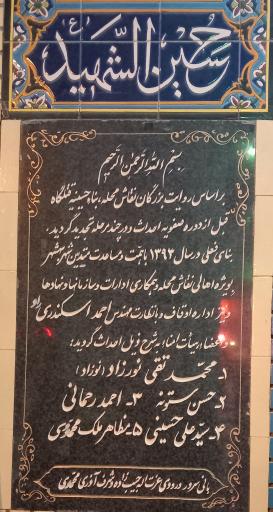 حسین الشهید ع
بسم الله الرحمن الرحیم
بر اساس روایت بزرگان نقاش محله بناء حسینیه قتلگاه
قبل از دوره صفویه احداث و در چند مرحله تجدید گردید.
بنای فعلی در سال ۱۳۹۳ با همت و مساعدت متدینین شهر مهشهر
بویژه اهالی نقاش محله و همکاری ادارات و سازمانها و نهادها
و نیز اداره اوقاف و با نظارت مهندس احمد اسکندری لو
و اعضاء هیات امناء به شرح ذیل احداث گردید:
۱- محمد تقی نورزاد (نوزاد)
۲- حسن ستونه ۳- احمد رحمانی
۴- سید علی حسینی ۵- مظاهر ملک محمودی
بانی سردر ورودی عزت الله جیب زاده و شرف آذری محمدی